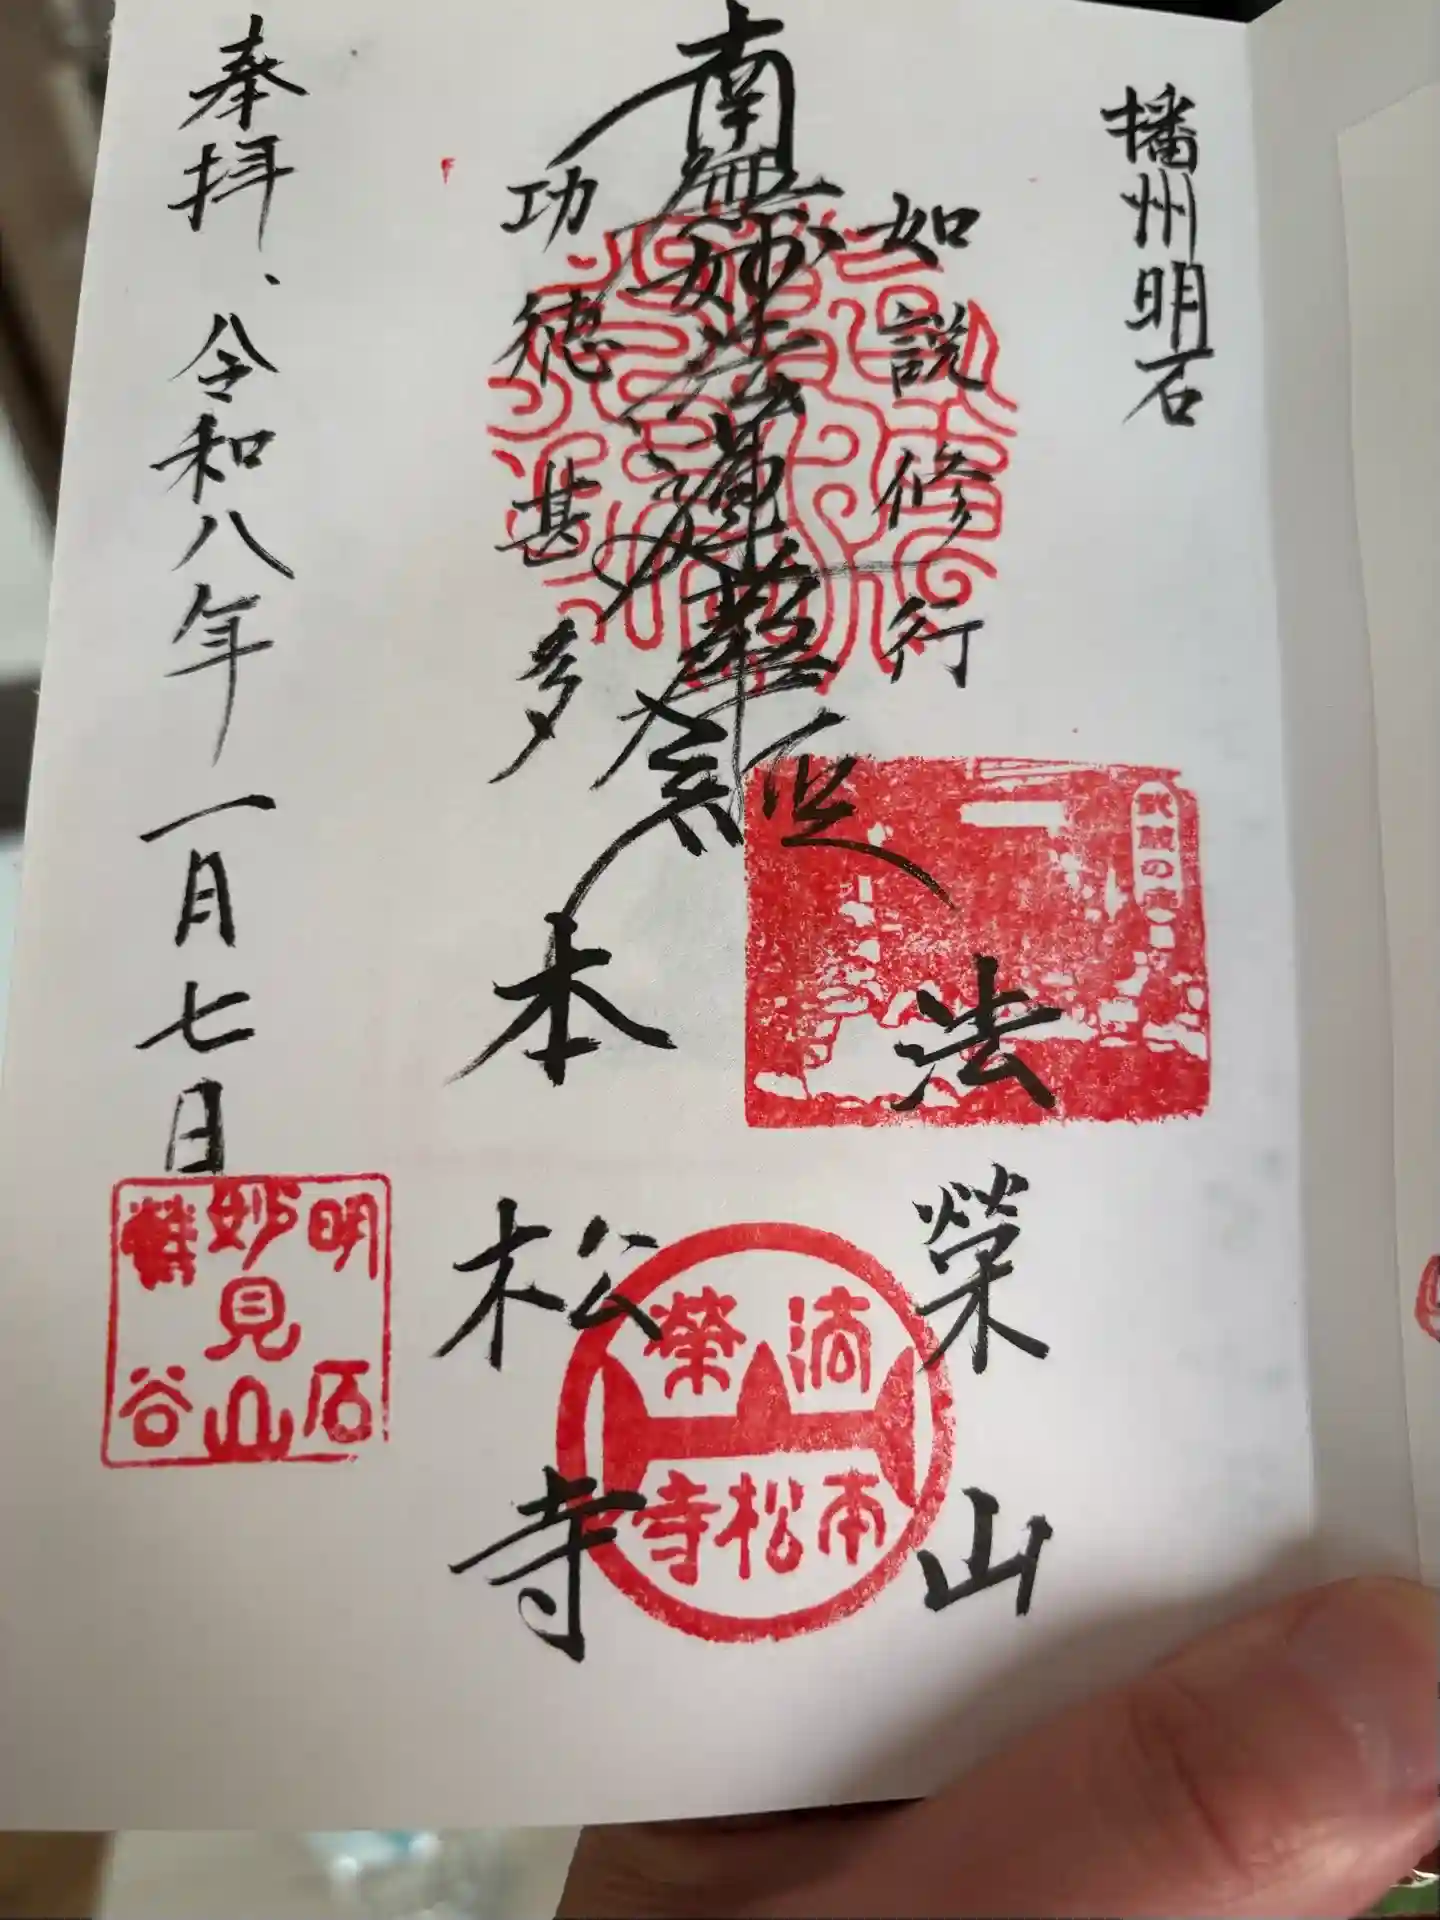 播州明石
如説修行
南無妙法蓮華経
功徳甚多
法榮山
本松寺
奉拝、令和八年一月七日
武蔵の庭
法榮山
本松寺
明石
妙見山
谷